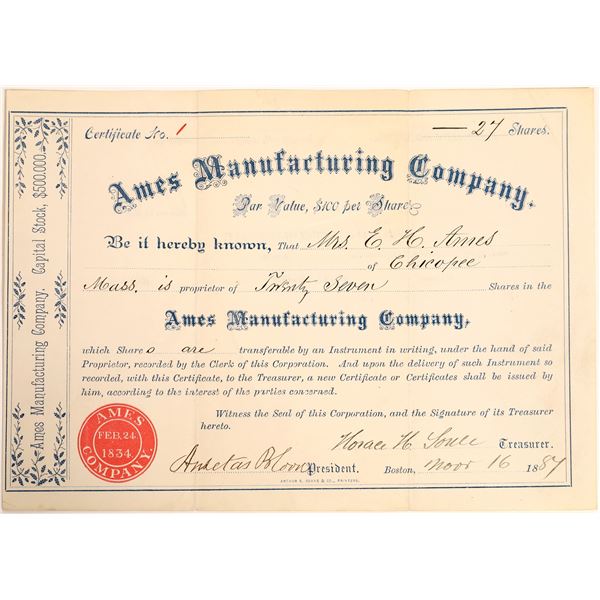 Ames Manufacturing Company. Capital Stock, $500.000.
Certificate No. 1
— 27 Shares.
Ames Manufacturing Company.
Par Value, $100 per Share.
Be it hereby known, That Mrs. E. H. Ames
of Chicopee
Mass. is proprietor of Twenty Seven Shares in the
Ames Manufacturing Company,
which Share s are transferable by an Instrument in writing, under the hand of said
Proprietor, recorded by the Clerk of this Corporation. And upon the delivery of such Instrument so
recorded, with this Certificate, to the Treasurer, a new Certificate or Certificates shall be issued by
him, according to the interest of the parties concerned.
Witness the Seal of this Corporation, and the Signature of its Treasurer
hereto.
AMES
FEB. 24
1834.
COMPANY.
Horace H. Soule Treasurer.
President. Boston, Novr 16 1887
PRINTERS.